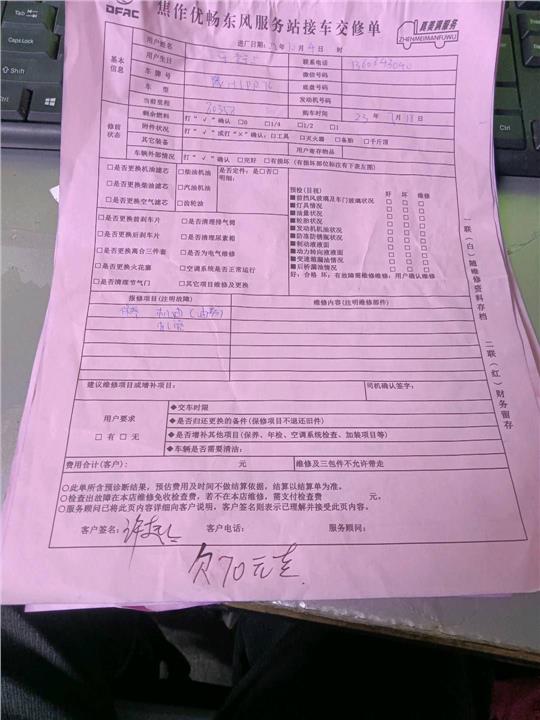 DFAC
焦作优畅东风服务站接车交修单
真要满服务
ZHENMEIMANFUWU
基本信息
用户姓名 进厂日期: 年10月4日 时
用户生日 联系电话
车牌号 微信号码
车 型 底盘号码
当前里程 20352 发动机号码
剩余燃料 打“√”确认 □0 □1/4 □1/2 □1 购车时间 23年 月18日
修前状态
附件状况 打“√”或打“×”确认: □工具 □灭火器 □备胎 □千斤顶
其它装备 用户寄存物品
车辆外部情况 打“√”确认 □完好 □有损坏(有损坏部位标注有下表左图)
□是否更换机油滤芯 □柴油机油 是否定件: 是□否□
□是否更换柴油滤芯 □汽油机油 明细:
□是否更换空气滤芯 □齿轮油
□是否更换前刹车片 □是否清理排气筒
□是否更换后刹车片 □是否清理尿素箱
□是否更换离合三件套 □是否为电气维修
□是否更换火花塞 □空调系统是否正常运行
□是否清理节气门 □其它项目维修及更换
预检(目视) 好 坏 维修
■前挡风玻璃及车门玻璃状况 □ □ □
■灯具情况 □ □ □
■油量状况 □ □ □
■轮胎状况 □ □ □
■发动机机油状况 □ □ □
■防冻防锈瓶状况 □ □ □
■制动液液面 □ □ □
■动力转向液液面 □ □ □
■变速箱漏油情况 □ □ □
■后桥漏油情况 □ □ □
好: 合格 坏: 有故障需维修维修: 用户确认维修
报修项目(注明故障) 维修内容(注明维修部件)
保养 机油
建议维修项目或增补项目: 司机确认签字:
用户要求
□有 □无
◆交车时限
◆是否归还更换的备件(保修项目不退还旧件)
◆是否增补其他项目(保养、年检、空调系统检查、加装项目等)
◆车辆是否需要清洁:
费用合计(客户): 元 维修及三包件不允许带走
○此单所含预诊断结果,预估费用及时间不做结算依据,结算以结算单为准。
○检查出故障在本店维修免收检查费,若不在本店维修,需支付检查费 元。
○服务顾问已将此页内容详细向客户说明,客户签名则表示已理解并接受此页内容。
客户签名: 客户电话: 服务顾问:
欠70元走.
一联(白)随维修资料存档
二联(红)财务留存